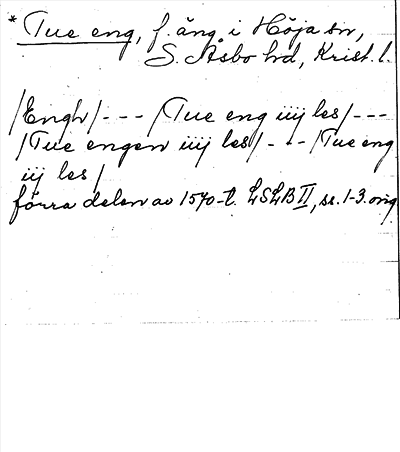 * Tue eng, f. äng i Höja sn,
S. Åsbo hd, Krist. l.
/Engh/ - - - /Tue eng iiij les/ - - -
/Tue engen iiij les/ - - - /Tue eng
iij les/
förra delen av 1570-t. LSLB II, sr. 1-3. orig